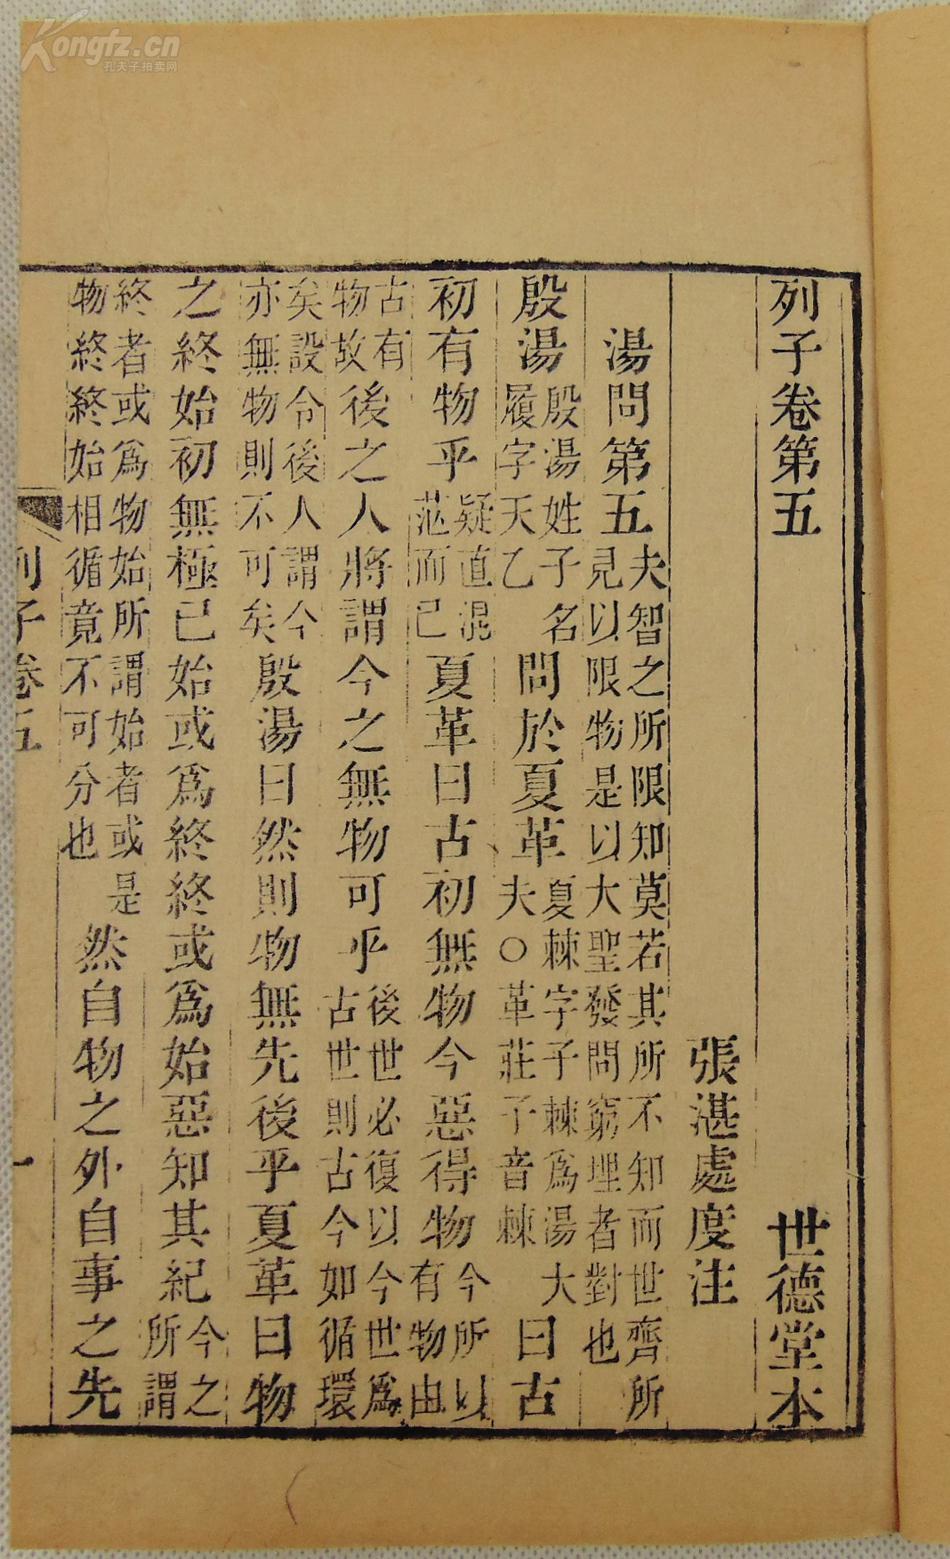 列子卷第五 世德堂本
張湛處度注
湯問第五 夫智之所限知莫若其所不知而世齊所見以限物是以大聖發問窮理者對也
殷湯 殷湯姓子名履字天乙 問於夏革 夏棘字子棘爲湯大夫○革莊子音棘 曰古
初有物乎 疑直混茫而已 夏革曰古初無物今惡得物 今所以有物由
古有物故 後之人將謂今之無物可乎 後世必復以今世爲古世則古今如循環
矣設令後人謂今亦無物則不可矣 殷湯曰然則物無先後乎夏革曰物
之終始初無極已始或爲終終或爲始惡知其紀 今之所謂
終者或爲物始所謂始者或是物終終始相循竟不可分也 然自物之外自事之先
列子卷五 一
Kongfz.cn
孔夫子拍卖网